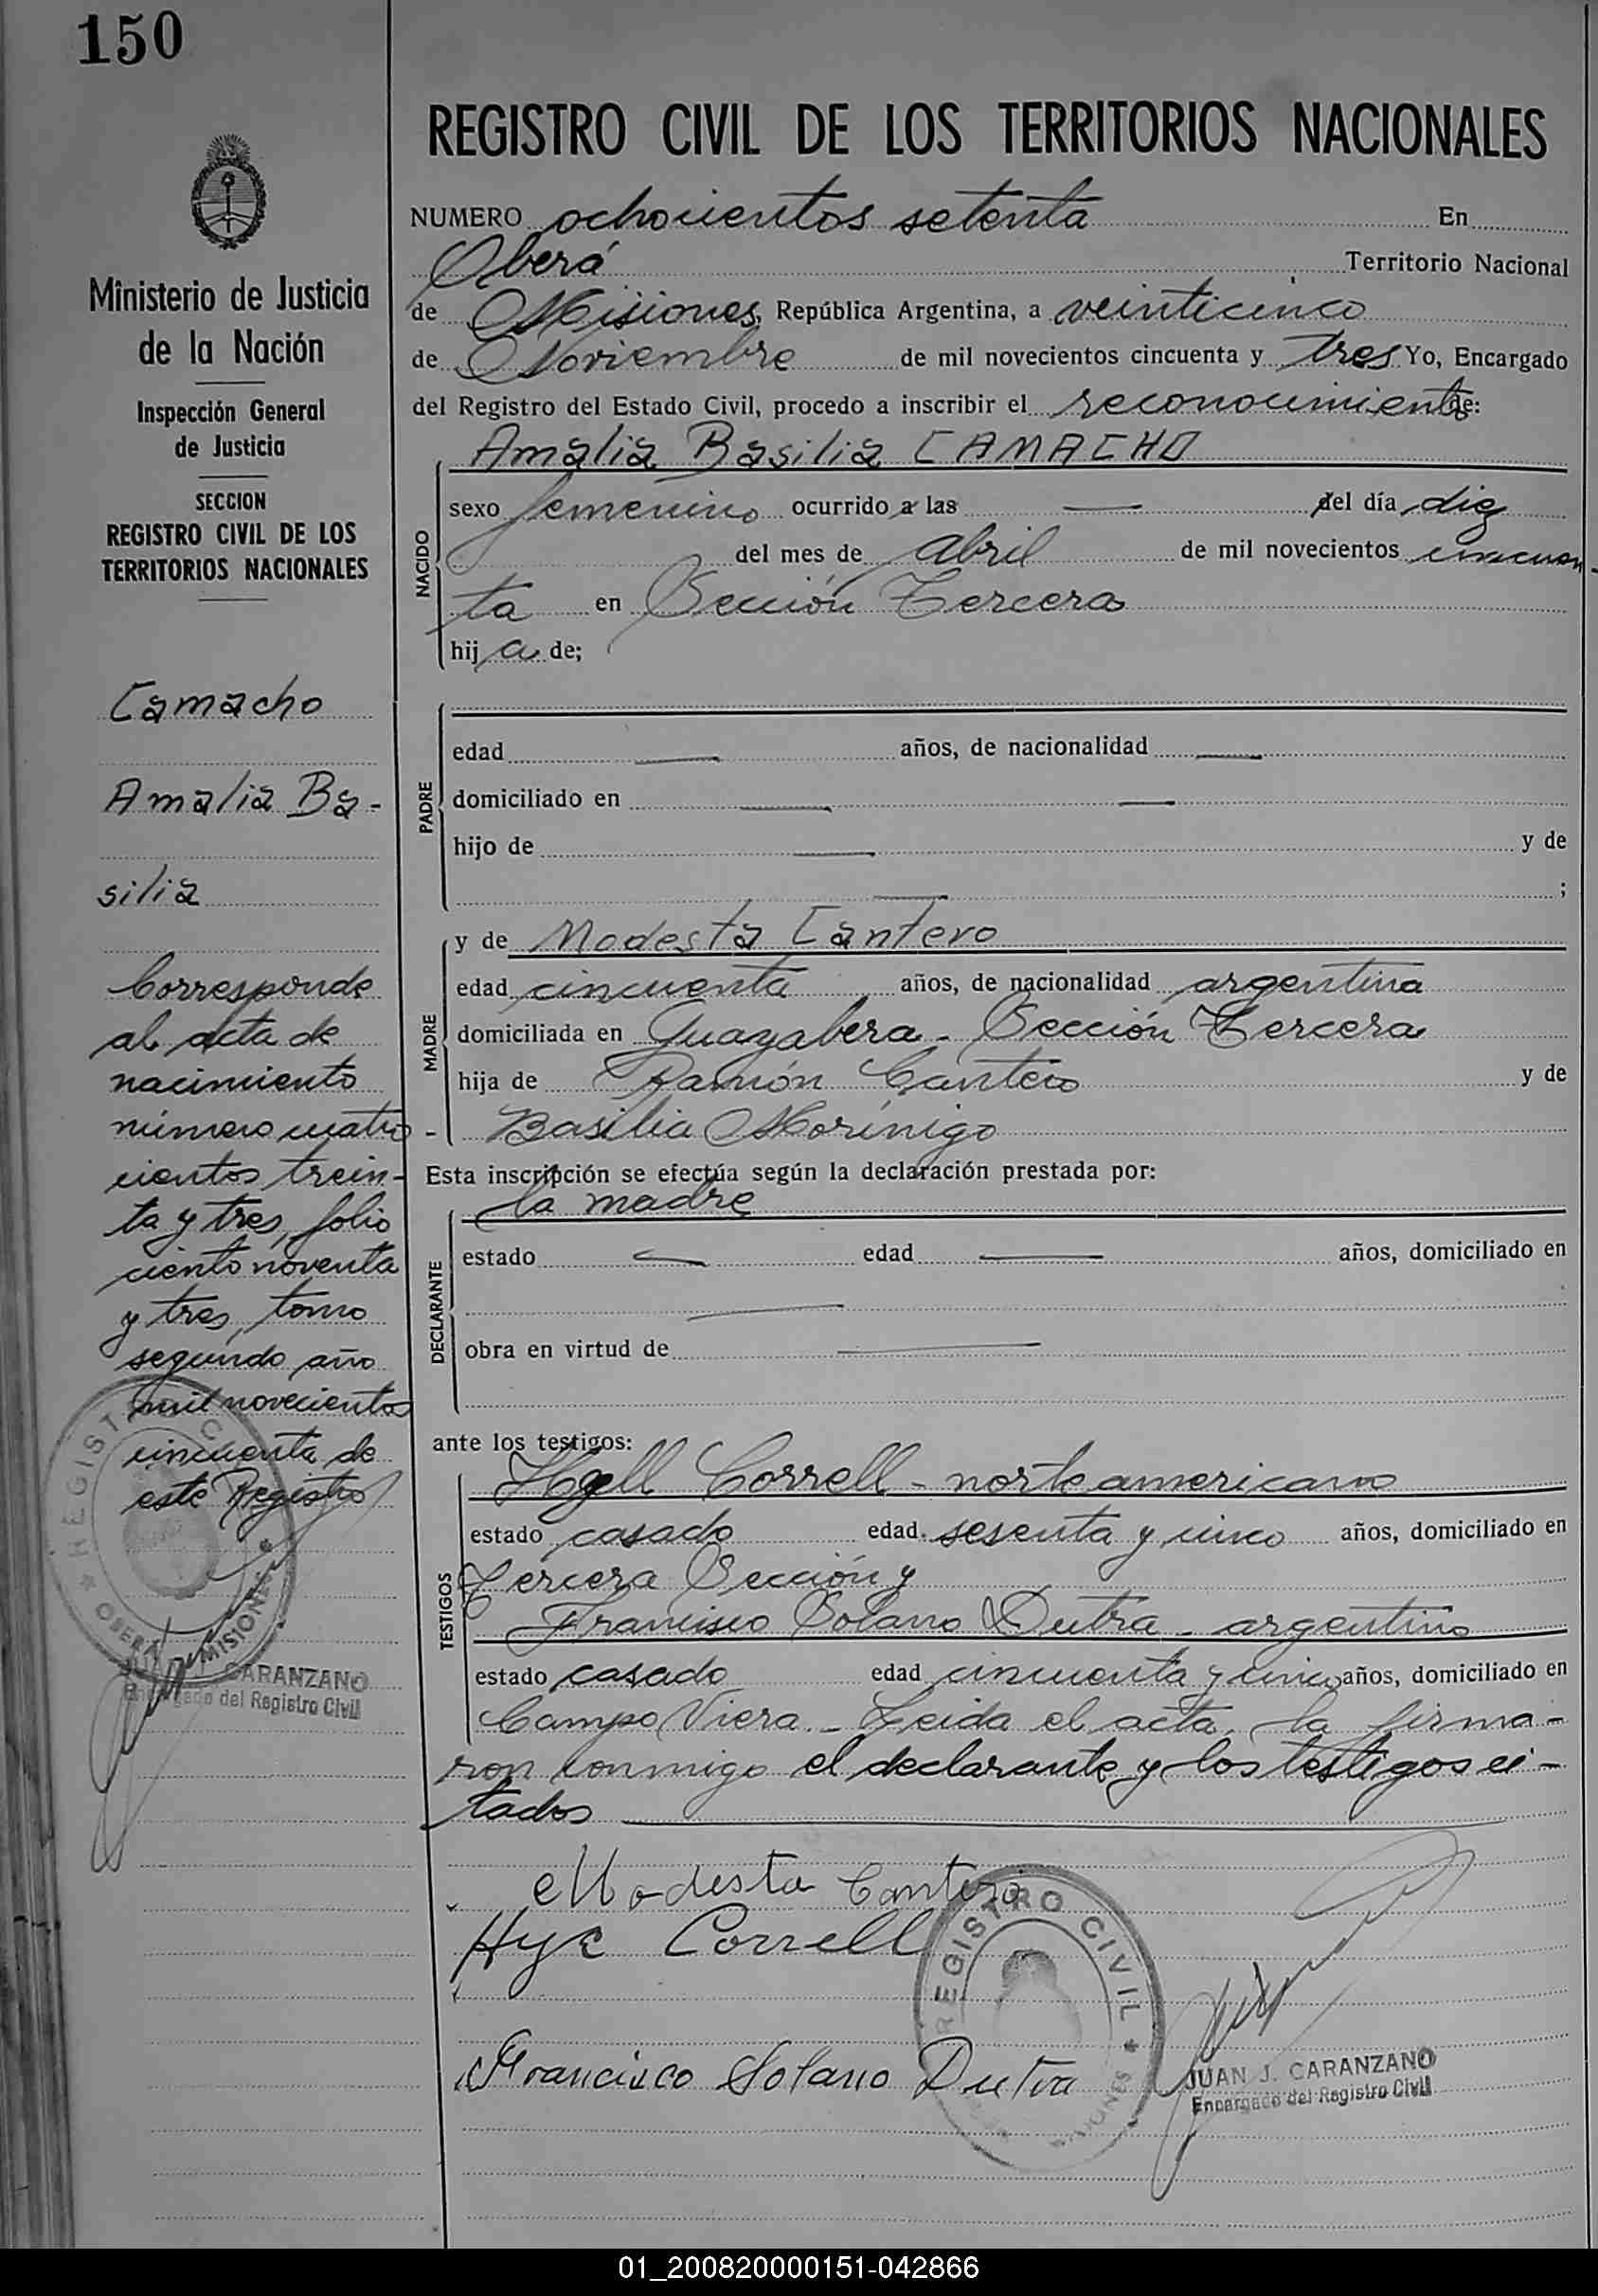 150
REGISTRO CIVIL DE LOS TERRITORIOS NACIONALES
Ministerio de Justicia
de la Nación
Inspección General
de Justicia
SECCION
REGISTRO CIVIL DE LOS
TERRITORIOS NACIONALES
Camacho
Amalia Ba-
silia
Corresponde
al acta de
nacimiento
número cuatro-
cientos trein-
ta y tres, folio
ciento noventa
y tres, tomo
segundo año
mil novecientos
cincuenta de
este Registro
CARANZANO
Encargado del Registro Civil
NUMERO ochocientos setenta En
Oberá Territorio Nacional
de Misiones, República Argentina, a veinticinco
de Noviembre de mil novecientos cincuenta y tres Yo, Encargado
del Registro del Estado Civil, procedo a inscribir el reconocimiento de:
Amalia Basilia CAMACHO
NACIDO
sexo femenino ocurrido a las — del día diez
del mes de abril de mil novecientos cincuen-
ta en Sección Tercera
hija de;
PADRE
edad — años, de nacionalidad —
domiciliado en — —
hijo de — y de
— ;
MADRE
y de Modesta Cantero
edad cincuenta años, de nacionalidad argentina
domiciliada en Guayabera - Sección Tercera
hija de Ramón Cantero y de
Basilia Morínigo
Esta inscripción se efectúa según la declaración prestada por:
DECLARANTE
la madre
estado — edad — años, domiciliado en
—
obra en virtud de —
ante los testigos:
TESTIGOS
Correll - norteamericano
estado casado edad sesenta y cinco años, domiciliado en
Tercera Sección y
Francisco Solano Dutra - argentino
estado casado edad cincuenta y cinco años, domiciliado en
Campo Viera - Leida el acta, la firma-
ron conmigo el declarante y los testigos ci-
tados
Modesta Cantero
Hyc Correll
Francisco Solano Dutra
REGISTRO CIVIL * MISIONES
JUAN J. CARANZANO
Encargado del Registro Civil
01_200820000151-042866